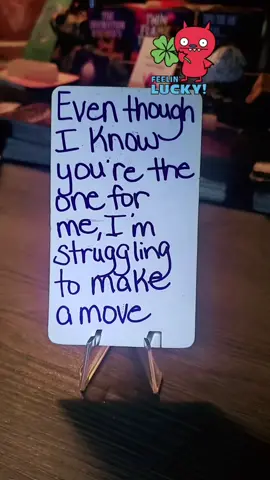 FEELIN'
LUCKY!
Even though
I Know
you're the
one for
me, I'm
struggling
to make
a move